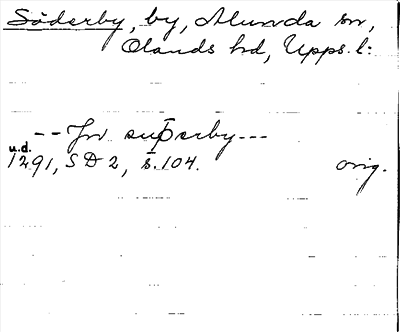 Söderby, by, Alunda sn,
Olands hd, Upps. l:
-- Jn suþerby---
u.d.
1291, SD 2, s. 104. orig.